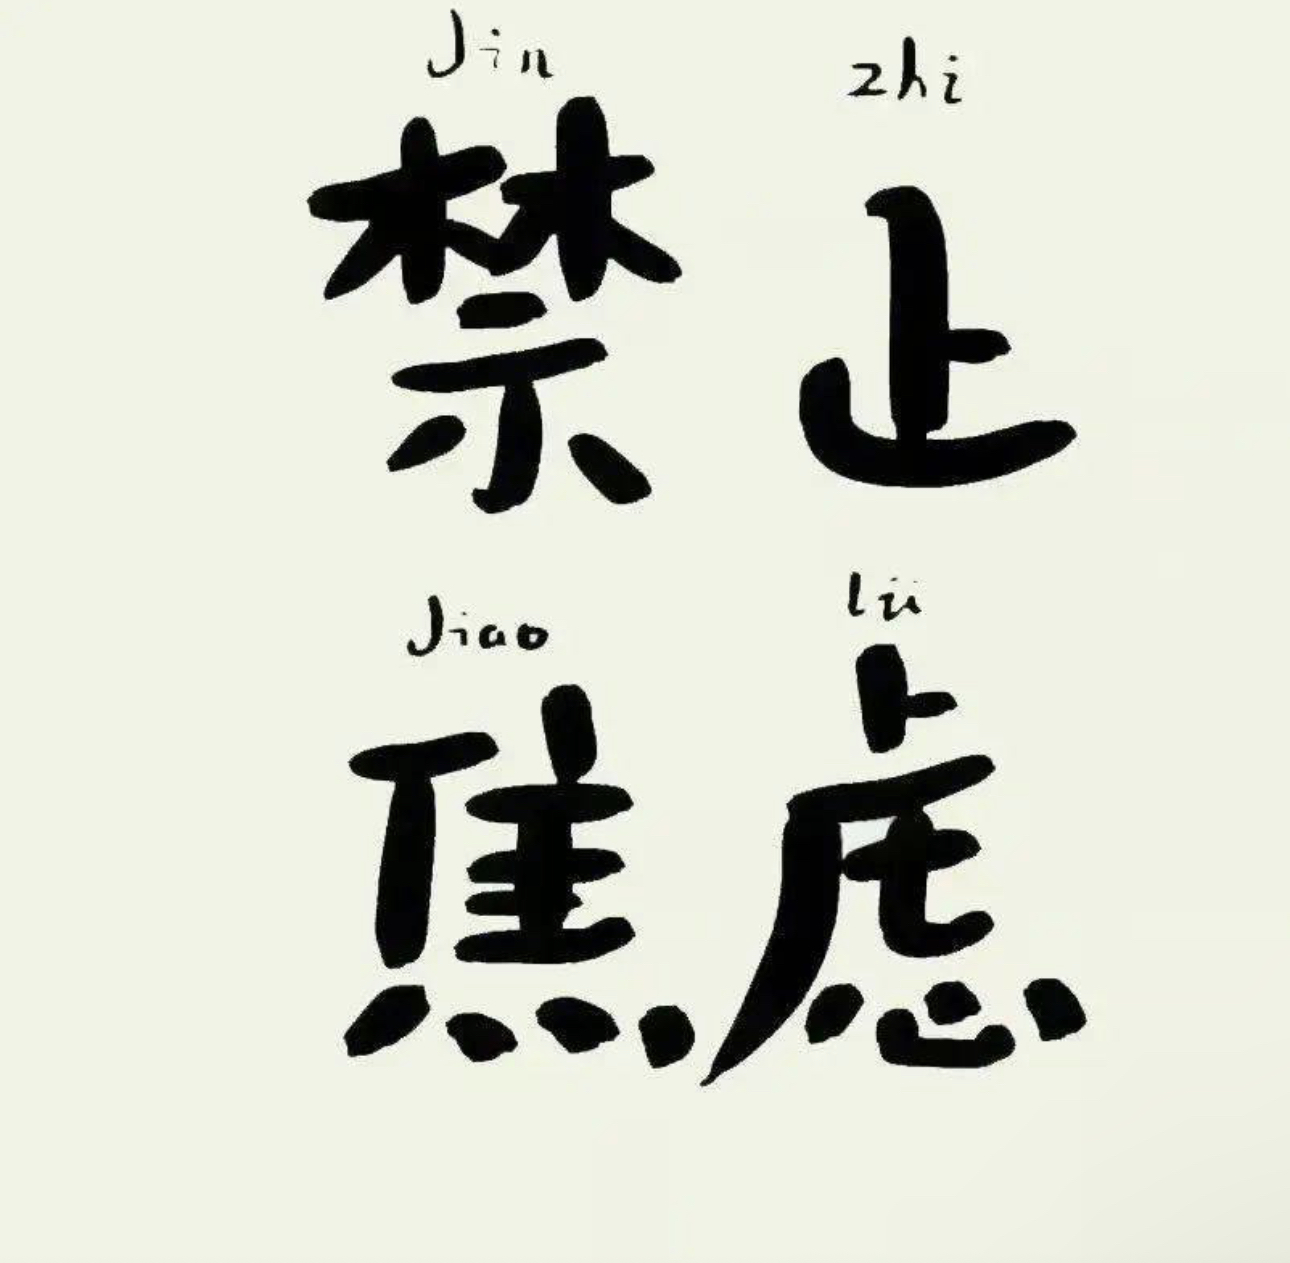 Jin zhi
禁止
Jiao lü
焦虑